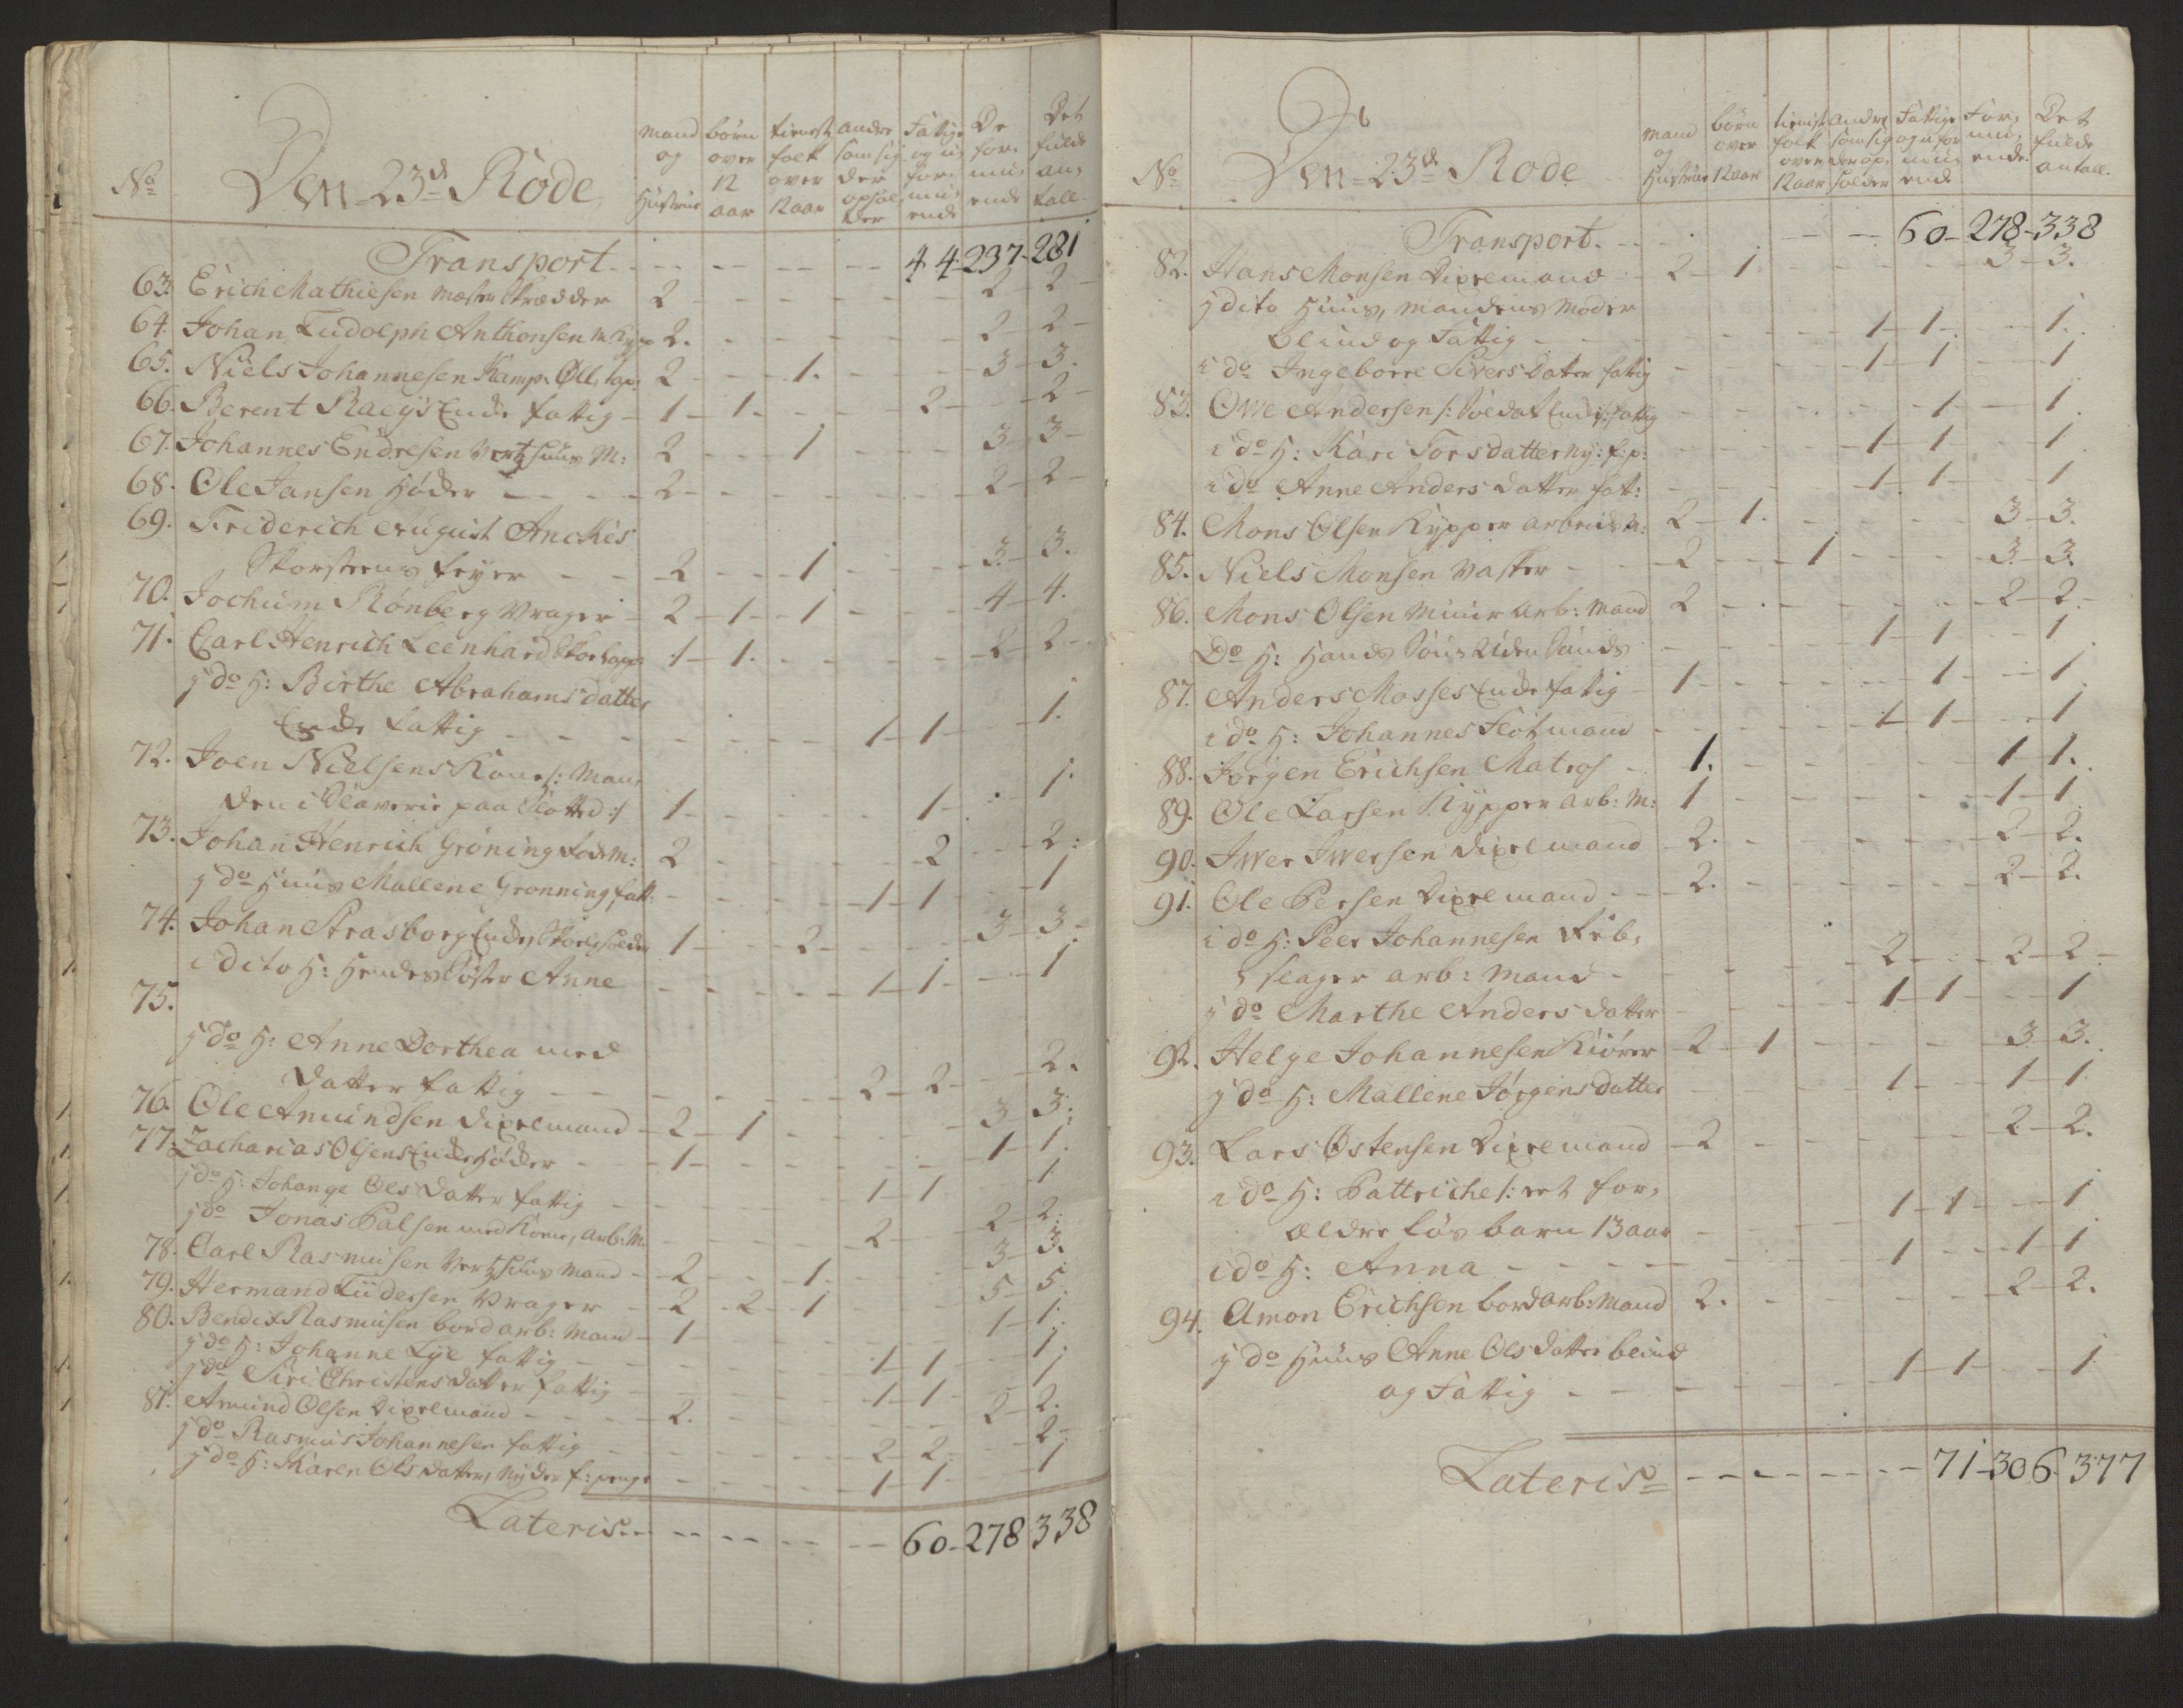 No Den 23d Rode mand og Hustrue børn over 12 aar tienst folk over 12 aar andre som sig der ophol der Fattige og u for mu ende De for mu ende Det fulde an tall.
Transport 44 237 281
63. Erich Mathiesen mester Skrædder 2 - - - - 2 2
64. Johan Ludolph Anthonsen 2. - - - - 2 2
65. Niels Johannesen Kamp. Øll tap: 2 - 1. - - 3 3.
66. Berent Raegs Enke fattig 1 1. - - 2 - 2
67. Johannes Endresen Vertshuus M: 2 - 1 - - 3 3
68. Ole Jansen Høder 2 - - - - 2 2
69. Friderich August Anckes
Skorsteens feyer 2 - 1 - - 3 3.
70. Jochum Rønberg Vrager 2 1 1 - - 4 4.
71. Carl Henrich Leenhard 1 1. - - - 2 2
j do H: Birthe Abrahams datter
Enke fattig - - - 1 1 - 1.
72. Joen Nielsens Kone /: Man
den i Slaverie paa Slotted :/ 1 - - - 1 - 1.
73. Johan Henrich Grøning M: 2 - - - 2 - 2:
j do Huus Mallene Grønning fatt: - - - 1 1 - 1
74. Johan Strasborg Enke, Skoleholder 1 - 2 - - 3 3
i dito H: Hendes Søster Anne - - - 1 1 - 1
75.
j do H: Anne Dorthea med
datter fattig - - - 2 2 - 2.
76. Ole Amundsen dixelmand 2 1 - - - 3 3.
77. Zacharias Olsens Enke Høder 1 - - - - 1 1.
j do H: Johange Ols datter fattig - - - 1 1 - 1
j do Jonas Palsen med Kone, arb: M. - - - 2 - 2 2.
78. Carl Rasmusen Vertshuus mand 2 - 1. - - 3 3.
79. Hermand Lüdersen Vrager 2 2 1 - - 5 5.
80. Bendix Rasmusen bord arb: mand 1 - - - - 1 1.
j do H: Johanne Lye fattig - - - 1 1 - 1.
j do Siri Christens datter fattig - - - 1 1 - 1
81. Amund Olsen dixelmand 2. - - - - 2 2.
j do Rasmus Johannesen fattig - - - 2 2 - 2
j do H: Karen Ols datter, nyder f: penge - - - 1 1 - 1
Lateris 60 278 338
No Den 23de Rode mand og Hustrue børn over 12 aar tienist folk over 12 aar andre som sig der op holder Fattige og u for mu ende For mu ende. Det fulde antall.
Transport. 60 278 338
82. Hans Monsen dixelmand 2 1 - - - 3 3.
j dito Huus, mandens moder
blind og Fattig - - - 1 1. - 1.
i do Ingeborre Sivers Dater fatig - - - 1 1 - 1
83. Owe Andersen /: Soldat Enke :/ fattig - - - - 1 - 1.
i do H: Kari Tors datter ny: f: p: - - - 1 1 - 1
i do Anne Anders datter fat: - - - 1 1 - 1
84. Mons Olsen Kypper arbeids M: 2 1. - - - 3 3.
85. Niels Monsen Vaster 2 - 1 - - 3 3.
86. Mons Olsen Muur arb: mand 2 - - - - 2 2.
Do H: Hands Søn - - - 1 1 - 1
87. Anders Mosses Enke fatig 1 - - - 1 - 1.
i do H: Johannes Flotmand - - - 1 1 - 1
88. Jørgen Erichsen Matros 1. - - - - 1 1.
89. Ole Larsen Kypper arb: M: 1 - - - - 1 1.
90. Iwer Iwersen dixelmand 2. - - - - 2 2.
91. Ole Persen dixelmand 2. - - - - 2 2.
i do H: Peer Johannesen Reb,
slager arb: mand - - - 2 - 2 2
j do Marthe Anders datter - - - 1 1 - 1
92. Helge Johannesen Kiører 2 1 - - - 3 3.
j do H: Mallene Jørgens datter - - - 1 - 1 1
93. Lars Østensen dixelmand 2 - - - - 2 2.
i do H: Pattriche /: et for,
ældre løs barn 13 aar - - - 1 1 - 1
i do H: Anna - - - 1 - 1 1
94. Amon Erichsen bord arb: mand 2. - - - - 2 2.
j do Huus Anne Ols datter blind
og Fattig - - - 1 1 - 1
Lateris 71 306 377